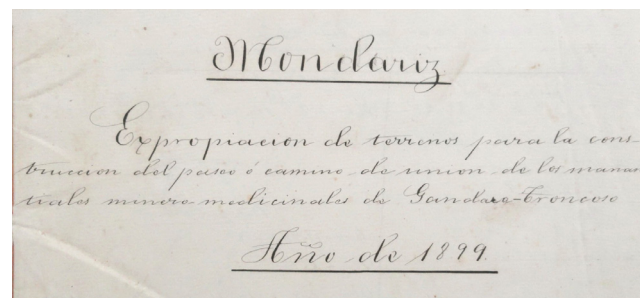 Mondariz
Expropiacion de terrenos para la cons-
truccion del paseo ó camino de union de los manan
tiales minero medicinales de Gandara-Troncoso
Año de 1899.